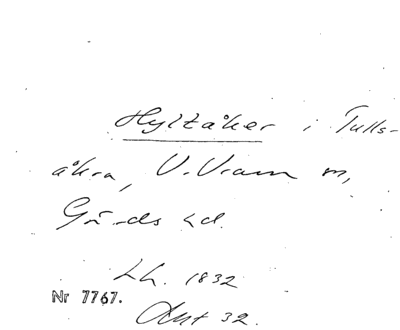 Hyltåker i Tulls-
åkra, V. Vram m,
Gärds hd.
Lh. 1832
Nr 7767.
Akt 32.